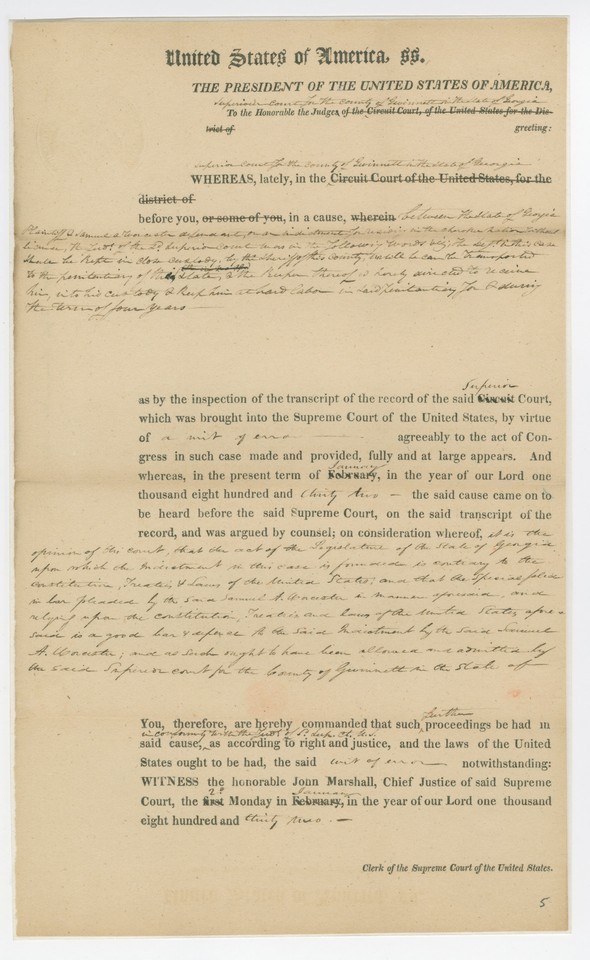 United States of America, ss.
THE PRESIDENT OF THE UNITED STATES OF AMERICA,
Superior Court for the County of Gwinnett in the State of Georgia
To the Honorable the Judges of the Circuit Court, of the United States for the Dis-
trict of greeting:
superior court for the county of Gwinnett in the State of Georgia
WHEREAS, lately, in the Circuit Court of the United States, for the
district of
before you, or some of you, in a cause, wherein between The State of Georgia
Plaintiff & Samuel A Worcester defendant, on an indictment for residing in the Cherokee Nation without
license, the Judt. of the sd. Superior court was in the following words viz: the deft. in this case
shall be kept in close custody by the Sheriff of this County, until he can be transported
to the penitentiary of this State, & the Keeper thereof is hereby directed to receive
him, into his custody & keep him at hard labor in said penitentiary for & during
the term of four years
Superior
as by the inspection of the transcript of the record of the said Circuit Court,
which was brought into the Supreme Court of the United States, by virtue
of a writ of error agreeably to the act of Con-
gress in such case made and provided, fully and at large appears. And
January
whereas, in the present term of February, in the year of our Lord one
thousand eight hundred and thirty two – the said cause came on to
be heard before the said Supreme Court, on the said transcript of the
record, and was argued by counsel; on consideration whereof, it is the
opinion of this court, that the act of the Legislature of the State of Georgia
upon which the Indictment in this case is founded is contrary to the
constitution, Treaties & Laws of the United States; and that the special plea
in bar pleaded by the said Samuel A. Worcester in manner aforesaid, and
relying upon the constitution, Treaties and Laws of the United States afore
said is a good bar & defence to the said Indictment by the said Samuel
A. Worcester; and as such ought to have been allowed and admitted by
the said Superior court for the County of Gwinnett in the State of
further
You, therefore, are hereby commanded that such proceedings be had in
in conformity with the Judt. of sd. Sup. Ct. U.S.
said cause, as according to right and justice, and the laws of the United
States ought to be had, the said writ of error notwithstanding:
WITNESS the honorable John Marshall, Chief Justice of said Supreme
2d January
Court, the first Monday in February, in the year of our Lord one thousand
eight hundred and thirty two –
Clerk of the Supreme Court of the United States.
5